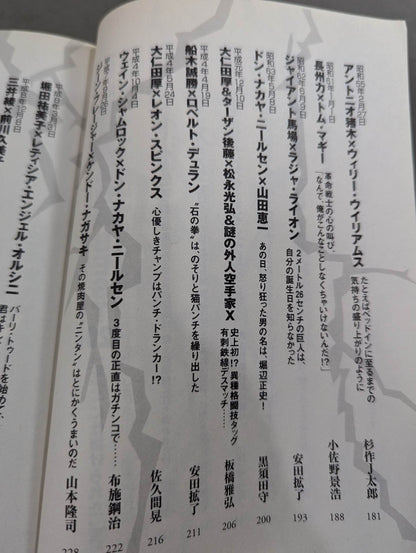 昭和55年2月27日
アントニオ猪木×ウィリー・ウイリアムス
たとえばベッドインに至るまでの
気持ちの盛り上がりのように
杉作J太郎
181
昭和61年1月1日
長州力×トム・マギー
革命戦士の心の叫び、
「なんで、俺がこんなことしなくちゃいけないんだ!?」
小佐野景浩
188
昭和62年6月9日
ジャイアント馬場×ラジャ・ライオン
2メートル26センチの巨人は、
自分の誕生日を知らなかった
安田拡了
193
昭和63年5月8日
ドン・ナカヤ・ニールセン×山田恵一
あの日、怒り狂った男の名は、堀辺正史!
黒須田守
200
平成元年12月10日
大仁田厚&ターザン後藤×松永光弘&謎の外人空手家X
史上初!? 異種格闘技タッグ
有刺鉄線デスマッチ……
板橋雅弘
206
平成4年4月19日
船木誠勝×ロベルト・デュラン
"石の拳"は、のそりと猫パンチを繰り出した
安田拡了
211
平成4年5月24日
大仁田厚×レオン・スピンクス
心優しきチャンプはパンチ・ドランカー!?
佐久間晃
216
平成4年10月4日
ウェイン・シャムロック×ドン・ナカヤ・ニールセン
3度目の正直はガチンコで……
布施鋼治
222
ケンドー・ナガサキ
その焼肉屋の"ニンタン"はとにかくうまいのだ
山本隆司
228
堀田祐美子×レティシア・エンジェル・オルシニ
バーリ・トゥードを始めて、
三井綾×前川久美子